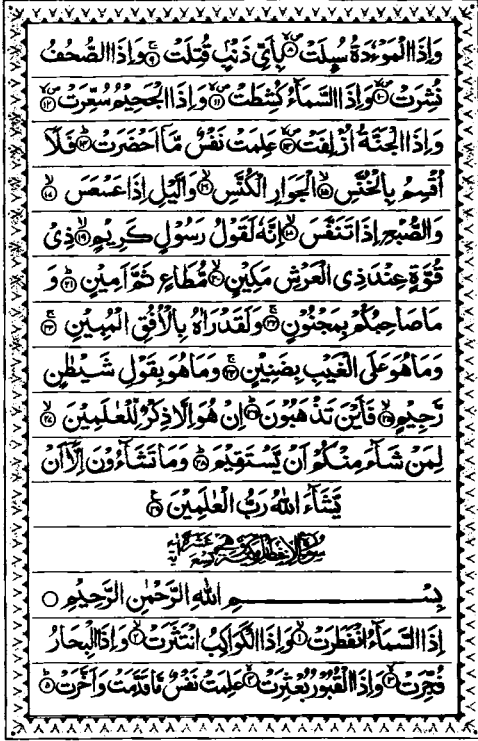 وَاِذَا الْمَوْءٗدَةُ سُىِٕلَتْ ۙ۸ بِاَيِّ ذَنْۢبٍ قُتِلَتْ ۚ۹ وَاِذَا الصُّحُفُ
نُشِرَتْ ۙ۱۰ وَاِذَا السَّمَآءُ كُشِطَتْ ۙ۱۱ وَاِذَا الْجَحِيْمُ سُعِّرَتْ ۙ۱۲
وَاِذَا الْجَنَّةُ اُزْلِفَتْ ۙ۱۳ عَلِمَتْ نَفْسٌ مَّاۤ اَحْضَرَتْ ؕ۱۴ فَلَاۤ
اُقْسِمُ بِالْخُنَّسِ ۙ۱۵ الْجَوَارِ الْكُنَّسِ ۙ۱۶ وَالَّيْلِ اِذَا عَسْعَسَ ۙ۱۷
وَالصُّبْحِ اِذَا تَنَفَّسَ ۙ۱۸ اِنَّهٗ لَقَوْلُ رَسُوْلٍ كَرِيْمٍ ۙ۱۹ ذِيْ
قُوَّةٍ عِنْدَ ذِي الْعَرْشِ مَكِيْنٍ ۙ۲۰ مُّطَاعٍ ثَمَّ اَمِيْنٍ ؕ۲۱ وَ
مَا صَاحِبُكُمْ بِمَجْنُوْنٍ ۚ۲۲ وَلَقَدْ رَاٰهُ بِالْاُفُقِ الْمُبِيْنِ ۚ۲۳
وَمَا هُوَ عَلَى الْغَيْبِ بِضَنِيْنٍ ۚ۲۴ وَمَا هُوَ بِقَوْلِ شَيْطٰنٍ
رَّجِيْمٍ ۙ۲۵ فَاَيْنَ تَذْهَبُوْنَ ؕ۲۶ اِنْ هُوَ اِلَّا ذِكْرٌ لِّلْعٰلَمِيْنَ ۙ۲۷
لِمَنْ شَآءَ مِنْكُمْ اَنْ يَّسْتَقِيْمَ ؕ۲۸ وَمَا تَشَآءُوْنَ اِلَّاۤ اَنْ
يَّشَآءَ اللّٰهُ رَبُّ الْعٰلَمِيْنَ ۲۹
بِسْمِ اللّٰهِ الرَّحْمٰنِ الرَّحِيْمِ ۝
اِذَا السَّمَآءُ انْفَطَرَتْ ۙ۱ وَاِذَا الْكَوَاكِبُ انْتَثَرَتْ ۙ۲ وَاِذَا الْبِحَارُ
فُجِّرَتْ ۙ۳ وَاِذَا الْقُبُوْرُ بُعْثِرَتْ ۙ۴ عَلِمَتْ نَفْسٌ مَّا قَدَّمَتْ وَاَخَّرَتْ ؕ۵